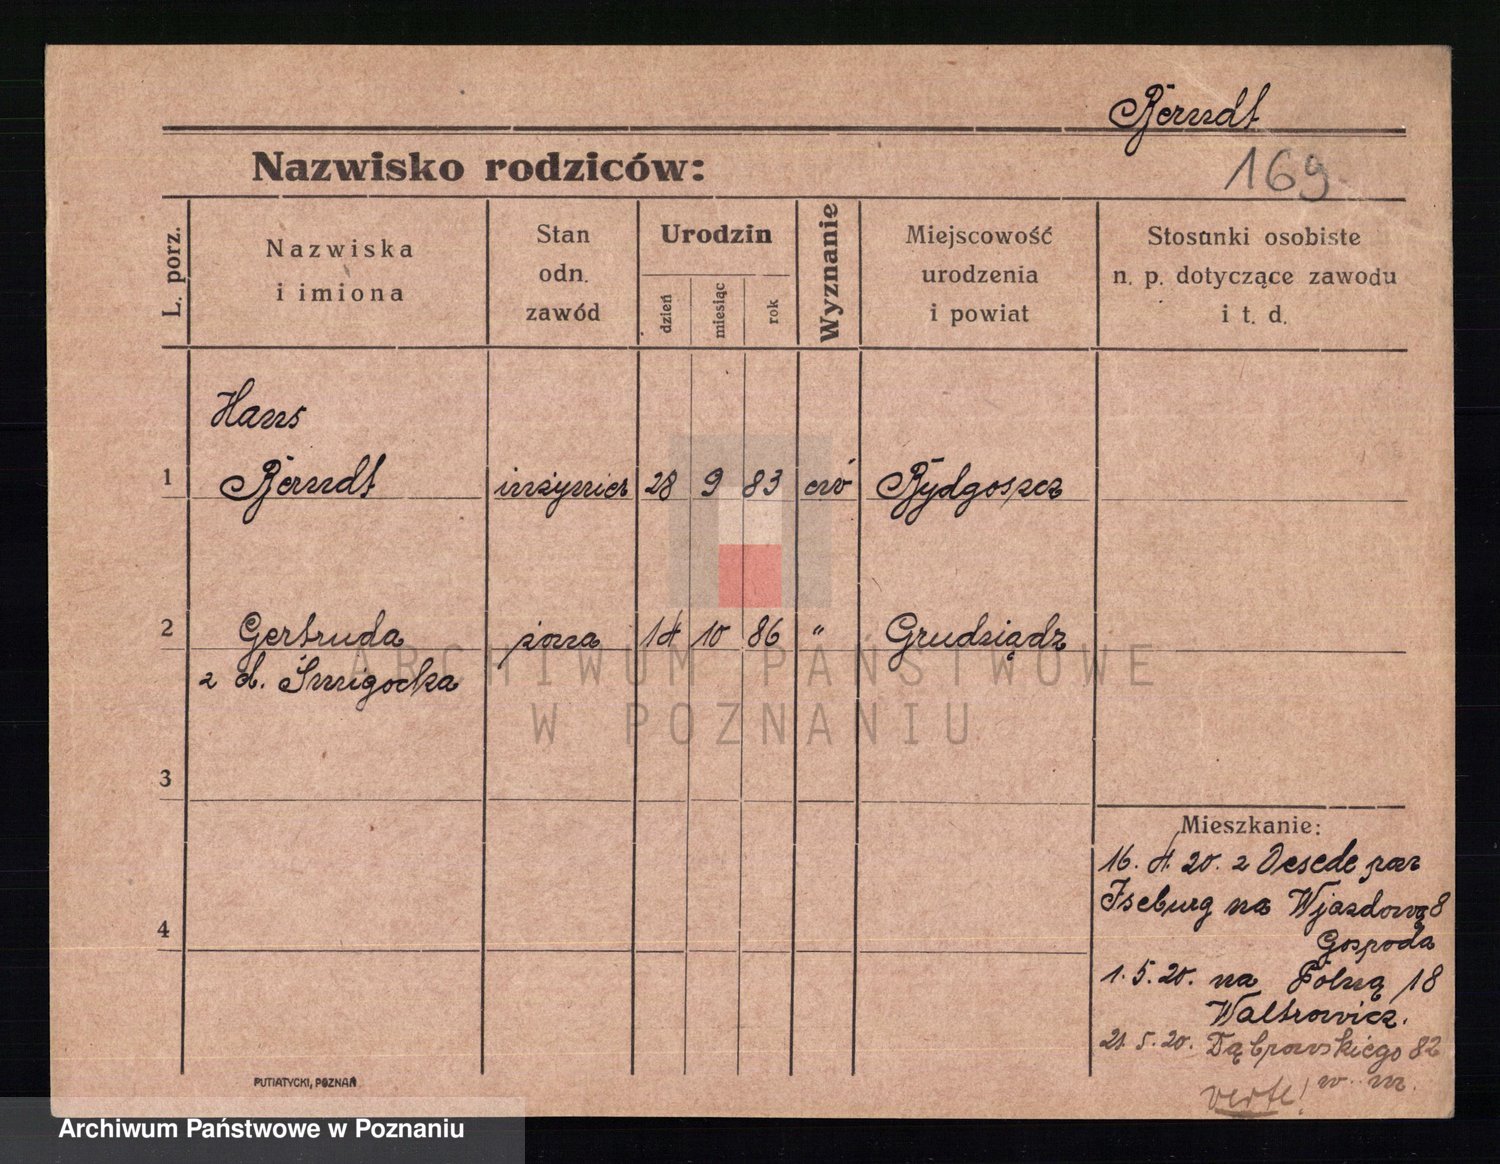 Berndt
Nazwisko rodziców:
169
L. porz.
Nazwiska
i imiona
Stan
odn.
zawód
Urodzin
dzień
miesiąc
rok
Wyznanie
Miejscowość
urodzenia
i powiat
Stosunki osobiste
n. p. dotyczące zawodu
i t. d.
Hans
1 Berndt inżynier 28 9 83 ew Bydgoszcz
2 Gertruda żona 14 10 86 " Grudziądz
z d. Smugocka
ARCHIWUM PAŃSTWOWE
W POZNANIU
3
Mieszkanie:
16. 4. 20. z Oesede
Iseburg na Wjazdową 8
4
Gospoda
1. 5. 20. na Polną 18
Waltrowicz.
21. 5. 20. Dąbrowskiego 82
w. m.
verte!
PUTIATYCKI, POZNAŃ
Archiwum Państwowe w Poznaniu